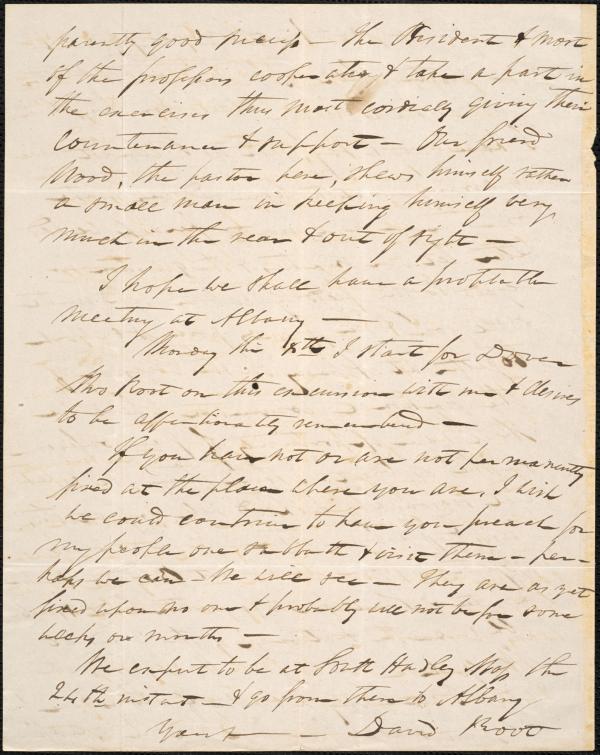 parently good success – the President & most
of the professors cooperates & take a part in
the exercises thus most cordially giving their
countenance & support – Our friend
Wood, the pastor here, shews himself rather
a small man in keeping himself very
much in the rear & out of sight –
I hope we shall have a profitable
meeting at Albany –
Monday the 8th I start for Dover
Mrs Root on this excursion with me & desires
to be affectionately remembered –
If you have not or are not permanently
fixed at the place where you are, I wish
we could contrive to have you preach for
my people one sabbath & visit them – per-
haps we can. We will see – They are as yet
fixed upon no one & probably will not be for some
weeks or months –
We expect to be at South Hadley Mass the
24th instant – & go from there to Albany
Yours – David Root